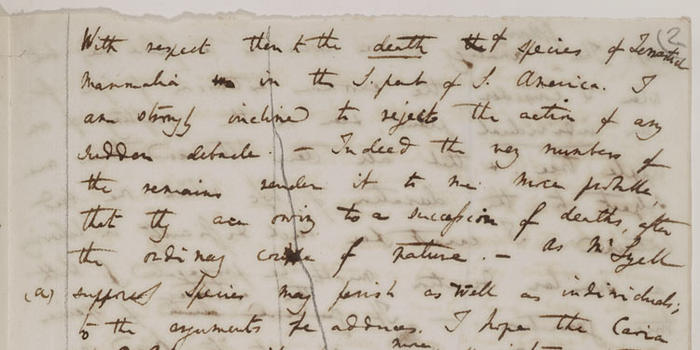 (2
With respect then to the death of species of Terrestrial
Mammalia in the S. part of S. America. I
am strongly inclined to reject the action of any
sudden debacle. — Indeed the very numbers of
the remains render it to me more probable,
that they are owing to a succession of deaths, after
the ordinary course of nature. — As Mr Lyell
(a) supposes Species may perish as well as individuals;
to the arguments he adduces. I hope the Cavia
more